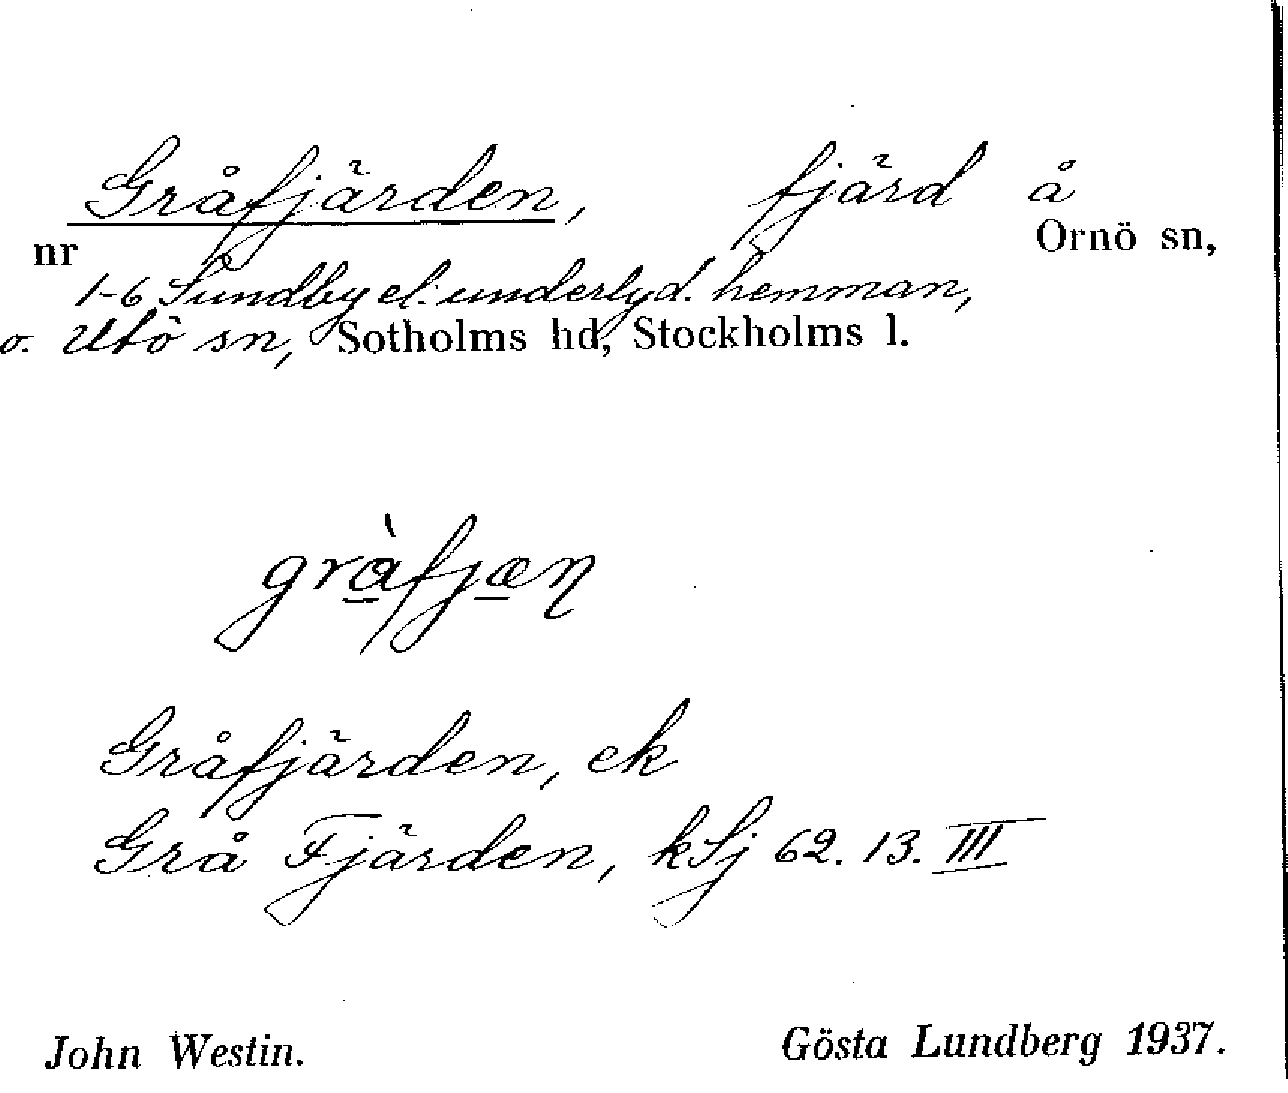 Gråfjärden, fjärd å
nr Ornö sn,
1-6 Sundby el. underlyd. hemman,
o. Utö sn, Sotholms hd, Stockholms l.
gràfjæn
Gråfjärden, ek
Grå Fjärden, kSj 62. 13. III
John Westin. Gösta Lundberg 1937.